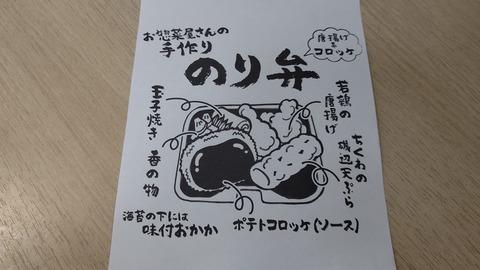 お惣菜屋さんの
手作り
のり弁
唐揚げ
&
コロッケ
玉子焼き
香の物
若鶏の
唐揚げ
ちくわの
磯辺天ぷら
海苔の下には
味付おかか
ポテトコロッケ(ソース)